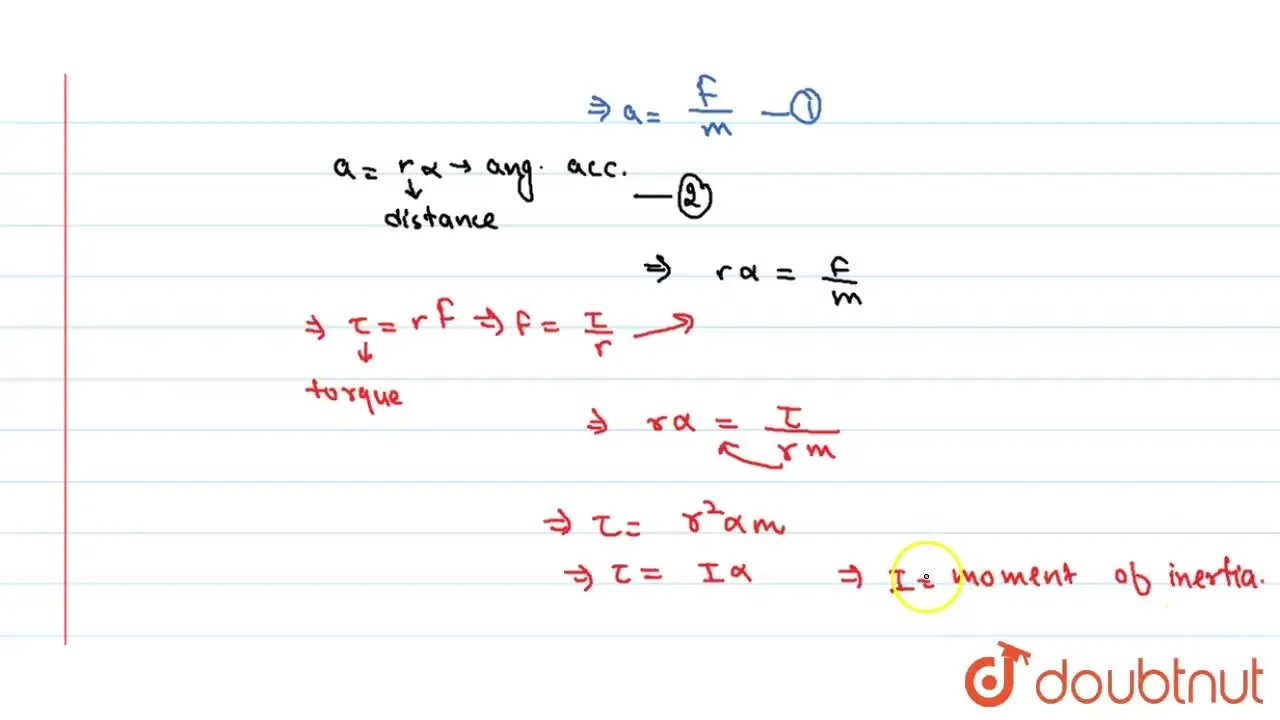 ⇒ a = F/m —①
a = rα → ang. acc.
↓
distance —②
⇒ rα = F/m
⇒ τ = rF ⇒ F = τ/r →
↓
torque
⇒ rα = τ/rm
⇒ τ = r²αm
⇒ τ = Iα ⇒ I = moment of inertia.
doubtnut